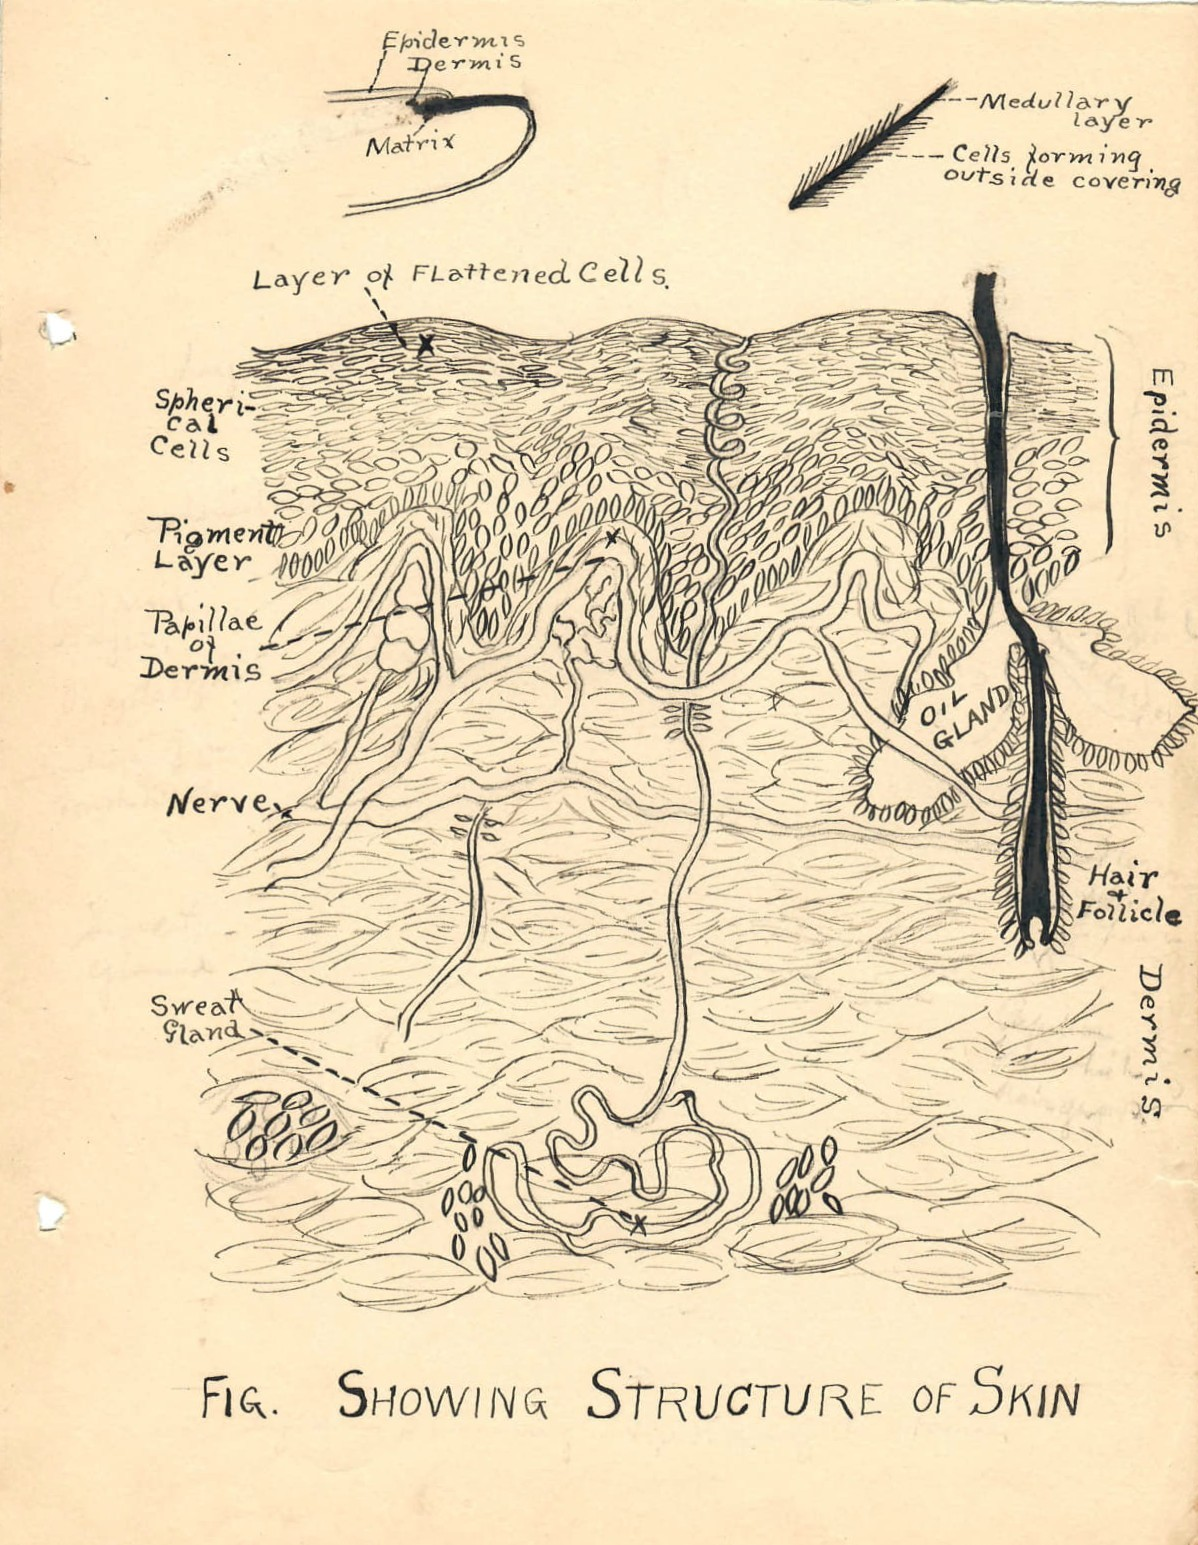 Epidermis
Dermis
Matrix
Medullary
layer
Cells forming
outside covering
Layer of Flattened Cells.
Spheri-
cal
Cells
Epidermis
Pigment
Layer
Papillae
of
Dermis
OIL
GLAND
Nerve
Hair
+
Follicle
Dermis
Sweat
Gland
FIG. SHOWING STRUCTURE OF SKIN